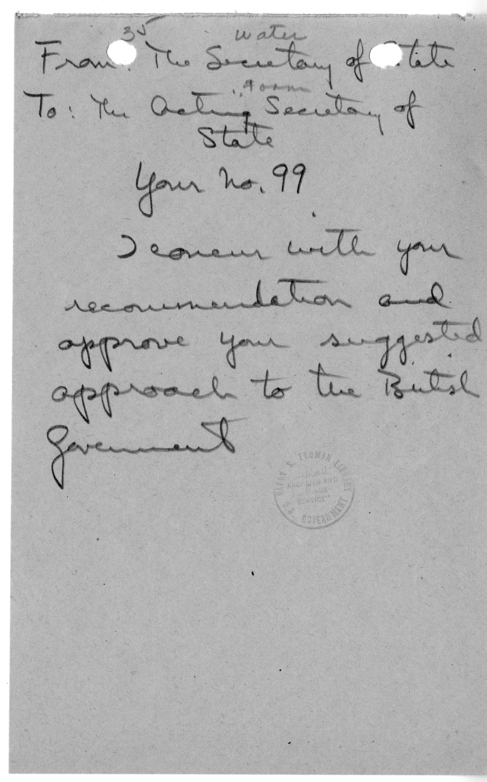 35
water
From: The Secretary of State
To: The Acting Secretary of
State
Your No. 99
I concur with your
recommendation and
approve your suggested
approach to the British
Government
HARRY S. TRUMAN LIBRARY
U.S. GOVERNMENT